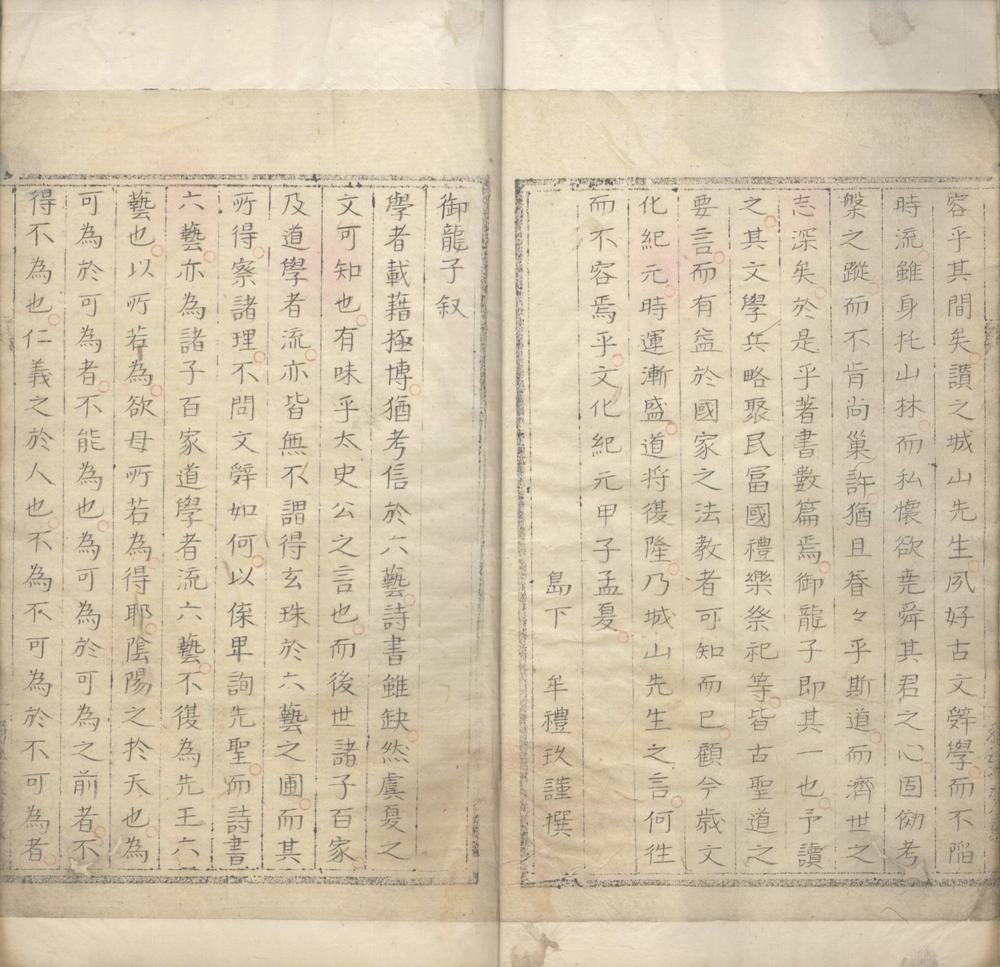 容乎其間矣讚之城山先生夙好古文辭學而不陷
時流雖身托山林而私懷欲堯舜其君之心固勿考
槃之蹤而不肯尚巢許猶且眷々乎斯道而濟世之
志深矣於是乎著書數篇焉御龍子即其一也予讀
之其文學兵略聚民富國禮樂祭祀等皆古聖道之
要言而有益於國家之法教者可知而已顧今歲文
化紀元時運漸盛道将復隆乃城山先生之言何徃
而不容焉乎文化紀元甲子孟夏
島下 牟禮玖謹撰
御龍子叙
學者載藉極博猶考信於六藝詩書雖缺然虞夏之
文可知也有味乎太史公之言也而後世諸子百家
及道學者流亦皆無不謂得玄珠於六藝之圃而其
所得察諸理不問文辭如何以俟畢詢先聖而詩書
六藝亦為諸子百家道學者流六藝不復為先王六
藝也以所若為欲母所若為得耶陰陽之於天也為
可為於可為者不能為也為可為於可為之前者不
得不為也仁義之於人也不為不可為於不可為者